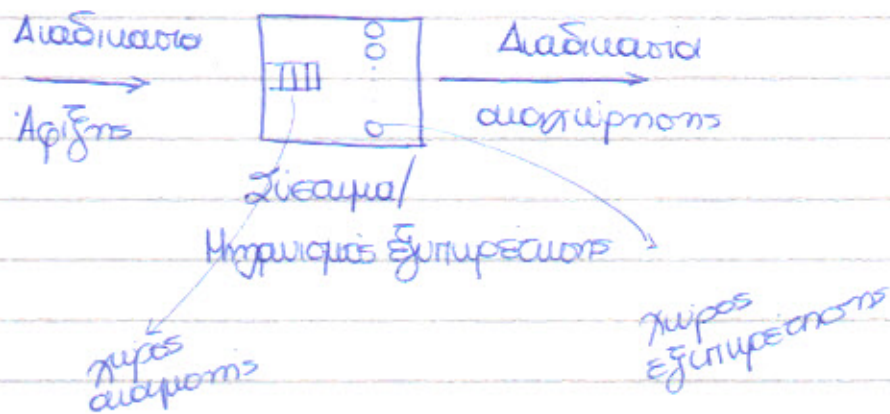 Διαδικασία
Άφιξης
Διαδικασία
αναχώρησης
Σύστημα/
Μηχανισμός εξυπηρέτησης
χώρος
αναμονής
χώρος
εξυπηρέτησης